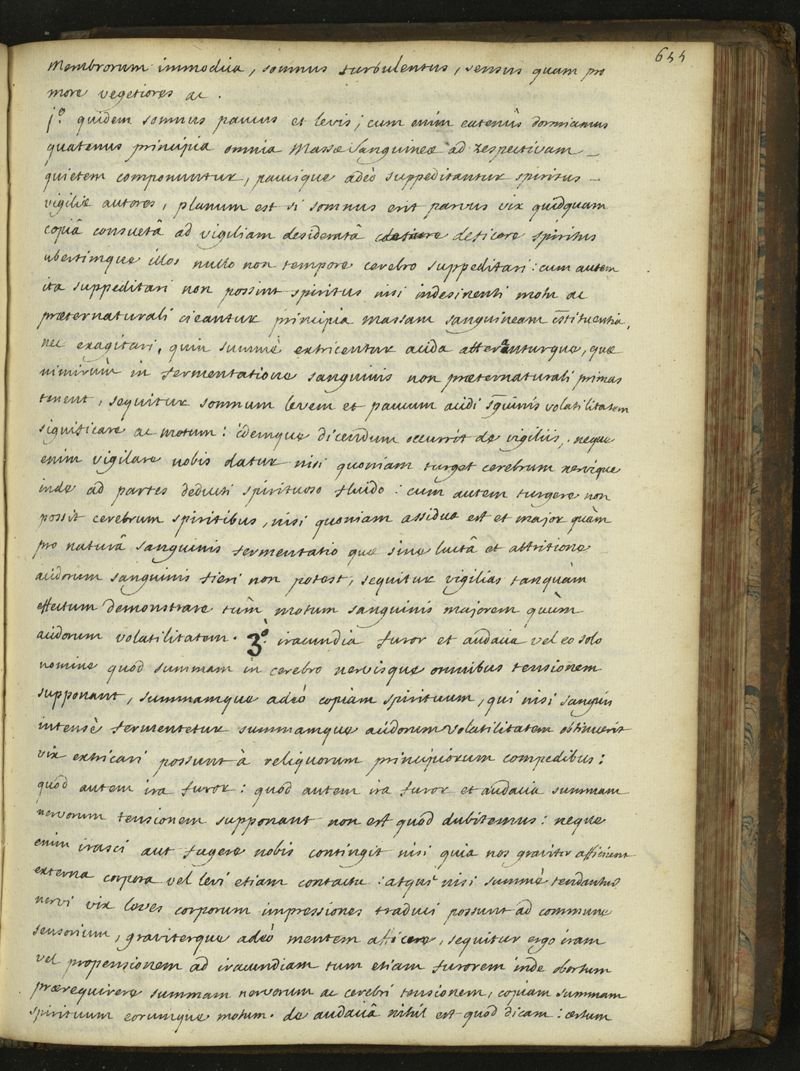 655
membrorum immodica, somnus turbulentus, sensus quam pro
more vegetiores ac.
1º. quidem somnus paucus et levis; cum enim eatenùs dormiamus
quatenus principia omnia Massæ Sanguineæ ad respectivam
quietem componuntur, paucique adeò suppeditantur spiritus
vigiliæ autores, planum est si somnus erit parvus vix quidquam
copiâ consuetâ ad vigiliam desideratâ deficere spiritus
ubertimque illos nullo non tempore cerebro suppeditari: cum autem
ita suppeditari non possint spiritus nisi indesinenti motu ac
præternaturali cieantur principia massam sanguineam cstituentia,
nec exagitari, quin summè extricentur acida atteranturque, quæ
nimirùm in fermentatione sanguinis non præternaturali primas
tenent, sequitur somnum levem et paucum acidi sguinis volatilitatem
significare ac motum: idemque dicendum occurrit de vigiliis, neque
enim vigilare nobis datur nisi quoniam turget cerebrum nervique
inde ad partes deducti spirituoso fluido: cum autem turgere non
possit cerebrum spiritibus, nisi quoniam assidua est et major quàm
pro naturâ sanguinis fermentatio quæ sine luctâ et attritione
acidorum sanguinis fieri non potest, sequitur vigilias tanquàm
effectum demonstrare tùm motum sanguinis majorem quàm
acidorum volatilitatem. 3º. iracundia furor et audacia vel eo solo
nomine quod summam in cerebro nervisque omnibus tensionem
supponant, summamque adeò copiam spirituum, qui nisi sanguis
intensè fermentetur summamque acidorum volatilitatem obtinuerit
vix extricari possunt à reliquorum principiorum compedibus:
quod autem ira furor: quod autem ira furor et audacia summam
nervorum tensionem supponant non est quod dubitemus: neque
enim irasci aut fugere nobis contingit nisi quia nos graviter afficiunt
externa corpora vel levi etiam contactu: atqui nisi summè tendantur
nervi vix leves corporum impressiones traduci possunt ad commune
sensorium, graviterque adeò mentem afficere, sequitur ergo iram
vel propensionem ad iracundiam tum etiam furorem inde obortum
prærequirere summam nervorum ac cerebri tensionem, copiam summam
spirituum eorumque motum. de audaciâ nihil est quod dicam: certum